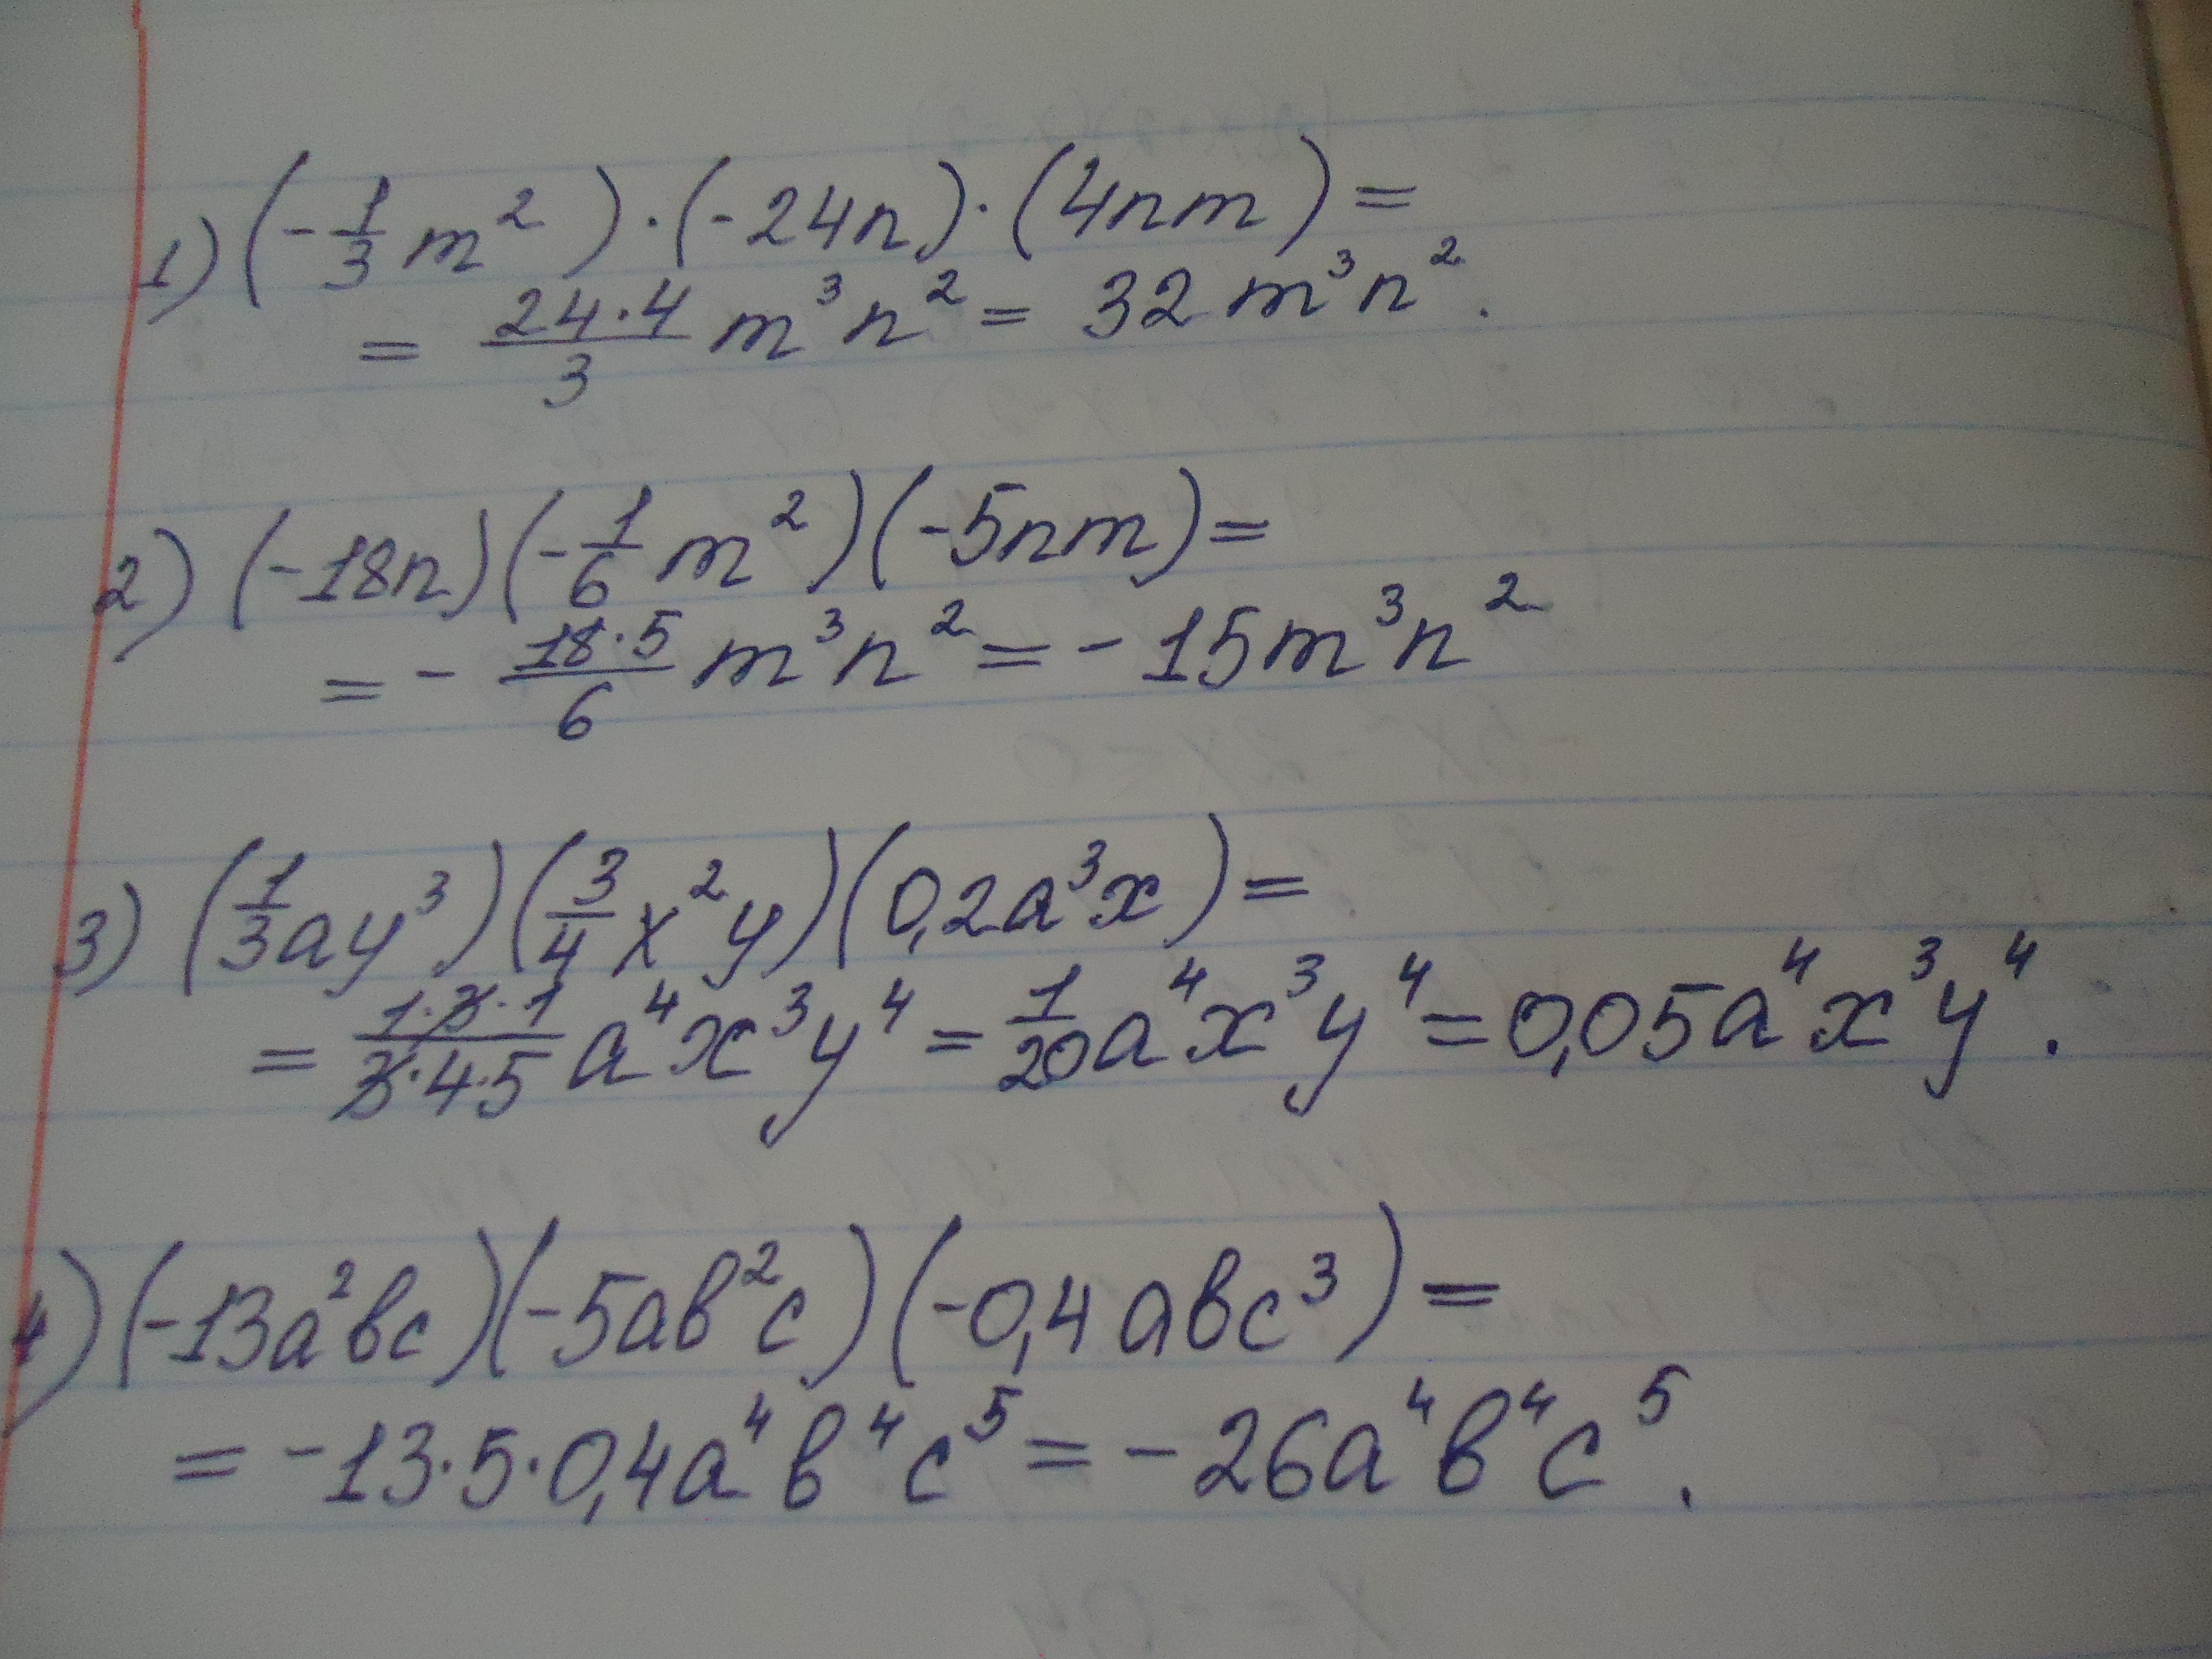 1) (-1/3 m²)·(-24n)·(4nm)=
= 24·4/3 m³n² = 32 m³n².
2) (-18n)(-1/6 m²)(-5nm)=
= - 18·5/6 m³n² = -15m³n²
3) (1/3 ay³)(3/4 x²y)(0,2a³x)=
= 1·3·1/3·4·5 a⁴x³y⁴ = 1/20 a⁴x³y⁴ = 0,05a⁴x³y⁴.
4) (-13a²bc)(-5ab²c)(-0,4abc³)=
= -13·5·0,4a⁴b⁴c⁵ = -26a⁴b⁴c⁵.